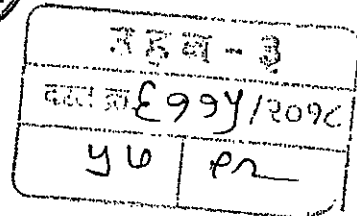 उहन - ३
दस्त क्र ६११५/२०१८
५७ ९२